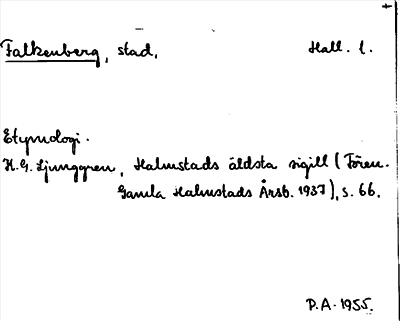 Falkenberg, stad, Hall. l.
Etymologi.
K.G. Ljunggren, Halmstads äldsta sigill (Fören.
Gamla Halmstads Årsb. 1937), s. 66.
P.A. 1955.